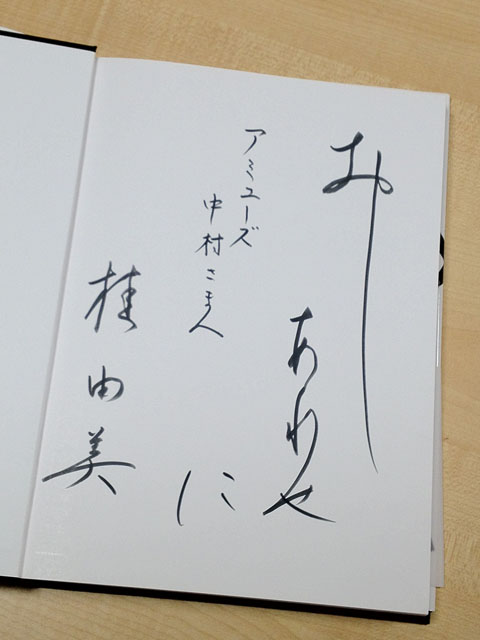 おし
あわせ
に
アミューズ
中村さまへ
桂由美